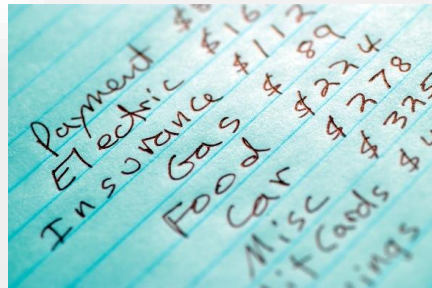 Payment $
Electric $16
Insurance $112
Gas $ 89
Food $224
Car $ 278
Misc $325
it Cards $
ings